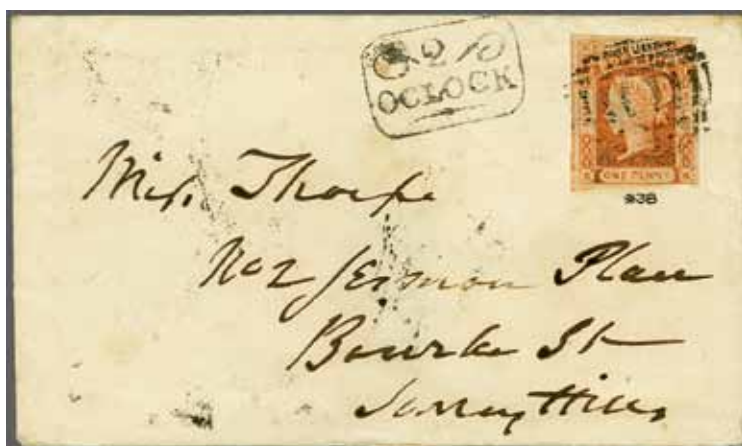 OCLOCK
ONE PENNY
938
Miss Thorpe
No 2
Place
Bourke St
Surrey Hills